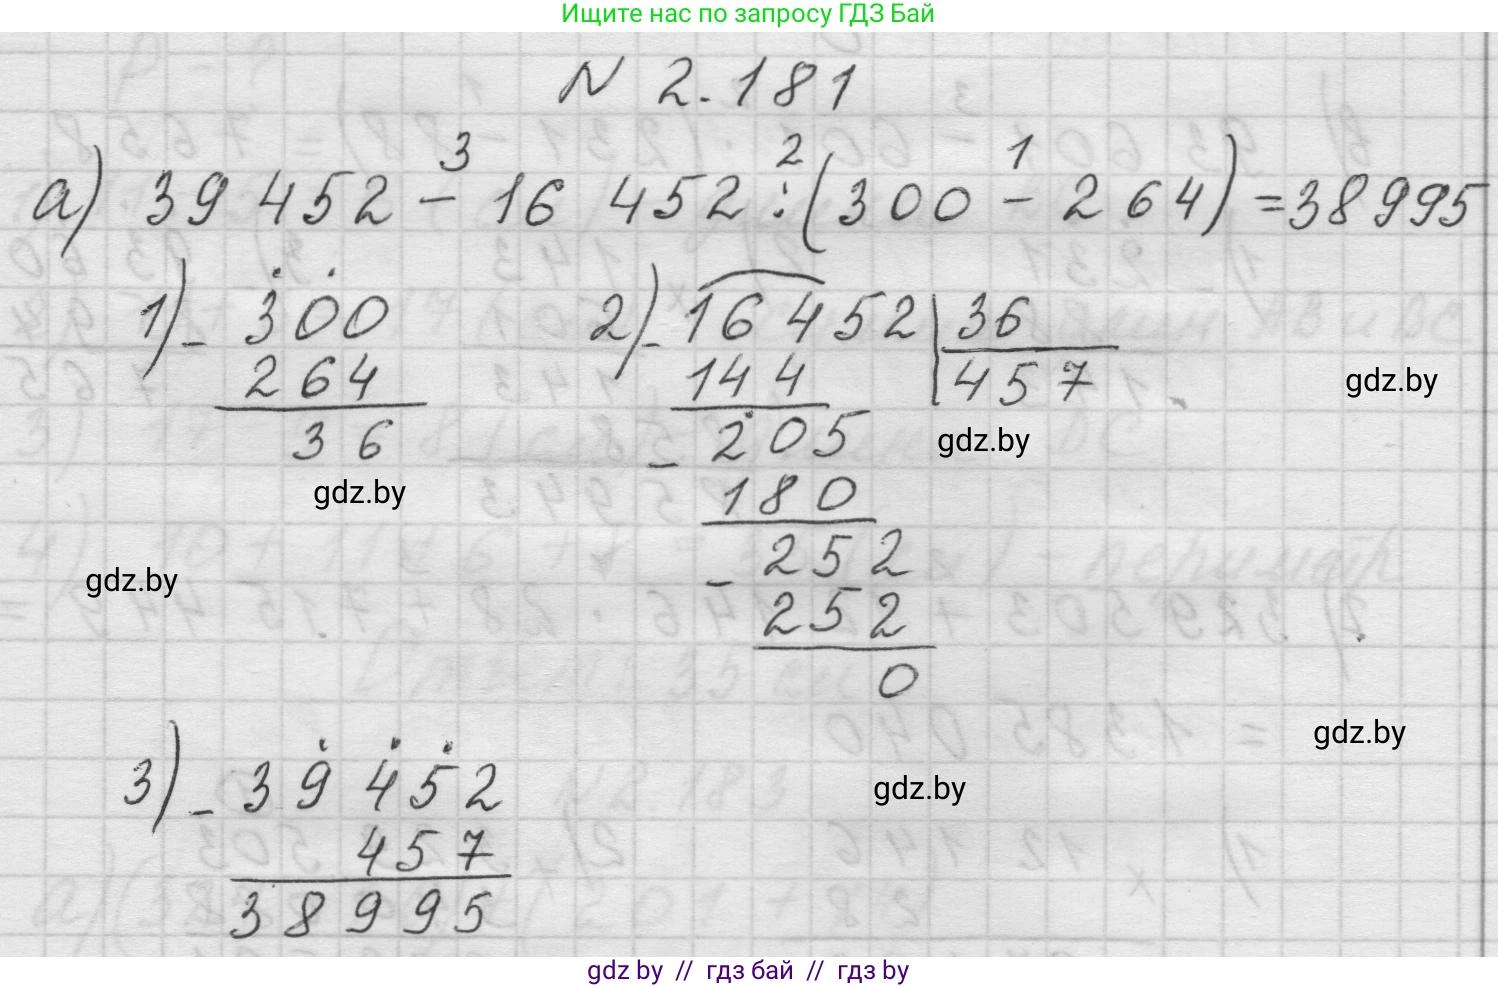 Ищите нас по запросу ГДЗ Бай
N 2.181
3 2 1
а) 39 452 - 16 452 : (300 - 264) = 38995
1) - 300
264
36
2) - 16452 | 36
144 457
- 205
180
- 252
252
0
3) - 39452
457
38995
gdz.by
gdz.by
gdz.by
gdz.by
gdz.by
gdz.by
gdz by // гдз бай // гдз by